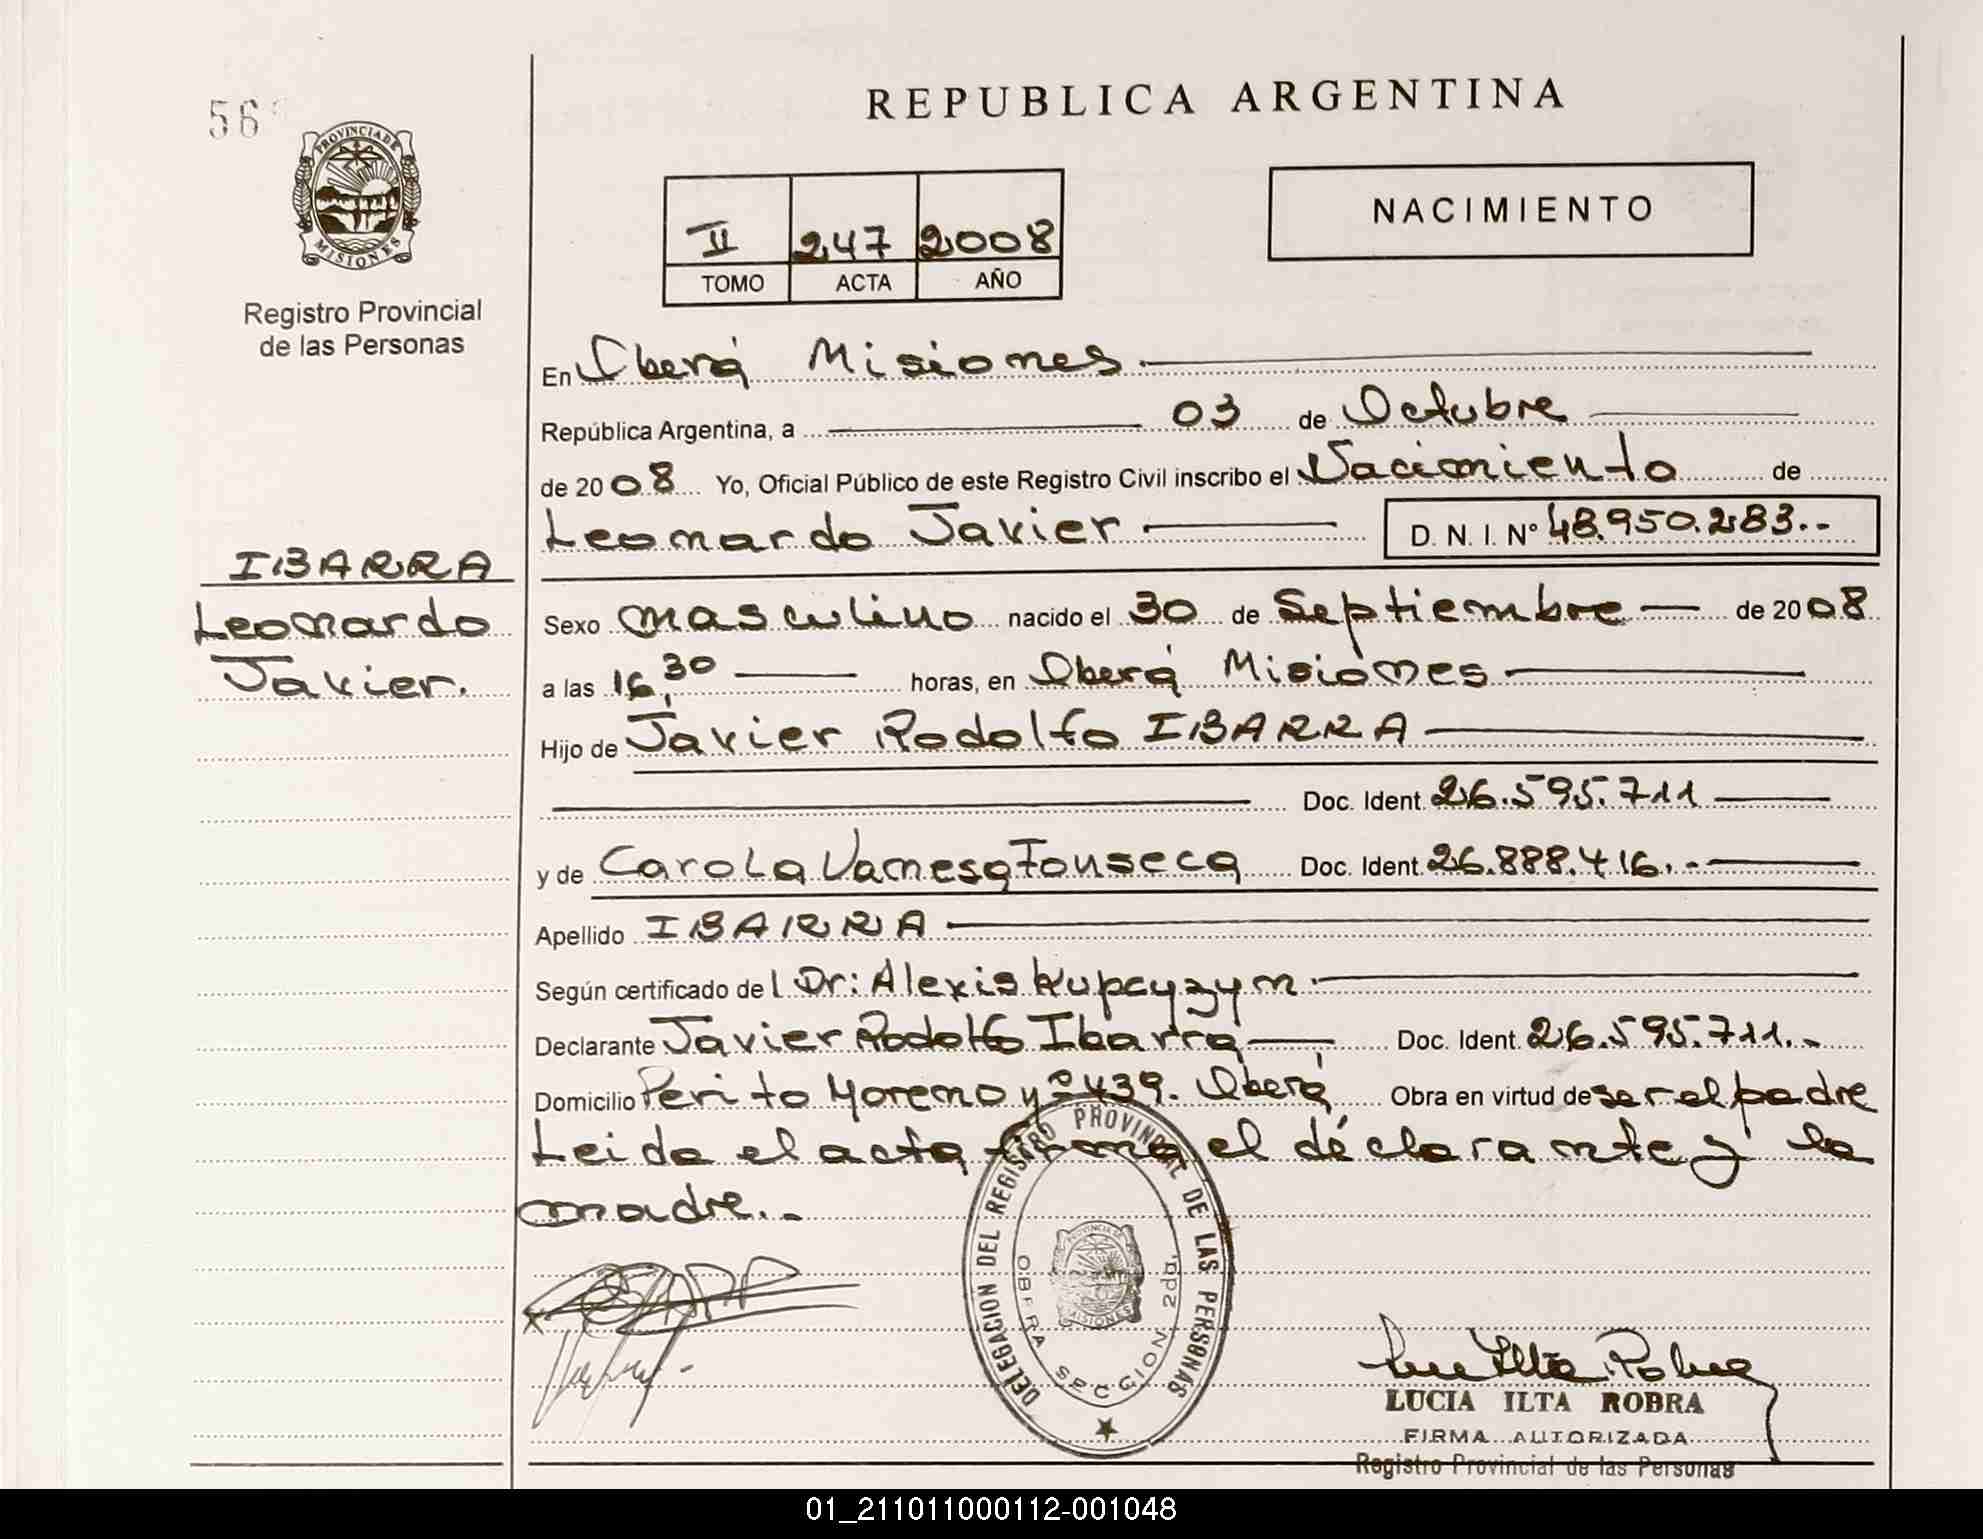 56
PROVINCIA DE
MISIONES
Registro Provincial
de las Personas
IBARRA
Leonardo
Javier.
REPUBLICA ARGENTINA
II 247 2008
TOMO ACTA AÑO
NACIMIENTO
En Oberá Misiones
República Argentina, a 03 de Octubre
de 2008 Yo, Oficial Público de este Registro Civil inscribo el Nacimiento de
Leonardo Javier D. N. I. Nº 48.950.283.-
Sexo masculino nacido el 30 de Septiembre de 2008
a las 16,30 horas, en Oberá Misiones
Hijo de Javier Rodolfo IBARRA
Doc. Ident. 26.595.711
y de Carola Vanesa Fonseca Doc. Ident. 26.888.416.-
Apellido IBARRA
Según certificado del Dr: Alexis Kupczyzyn
Declarante Javier Rodolfo Ibarra Doc. Ident. 26.595.711.-
Domicilio Perito Moreno nº 439. Oberá Obra en virtud de ser el padre
Leida el acta firma el declarante y la
madre.-
DELEGACION DEL REGISTRO PROVINCIAL DE LAS PERSONAS
OBERA SECCION 2da.
LUCIA ILTA ROBRA
FIRMA AUTORIZADA
Registro Provincial de las Personas
01_211011000112-001048